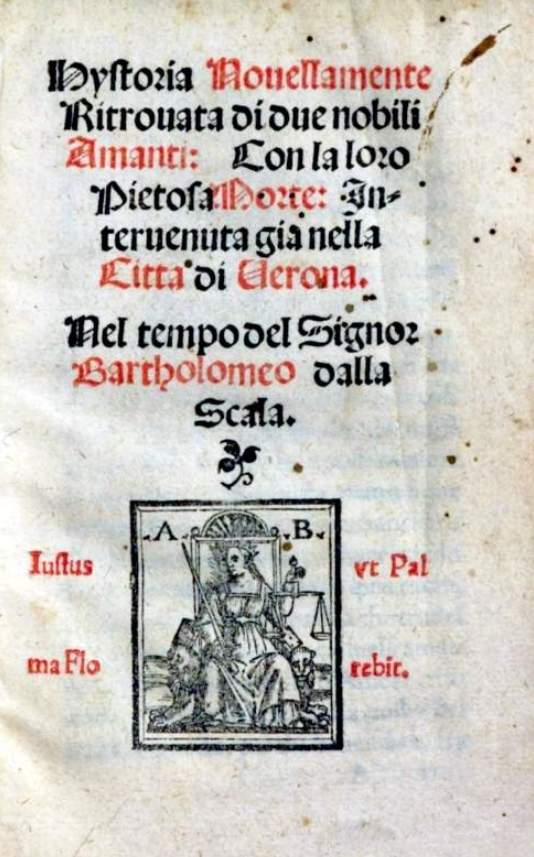 Hystoria Nouellamente
Ritrouata di due nobili
Amanti: Con la loro
Pietosa Morte: In-
teruenuta gia nella
Citta di Uerona.
Nel tempo del Signor
Bartholomeo dalla
Scala.
A B
Iustus vt Pal
ma Flo rebit.